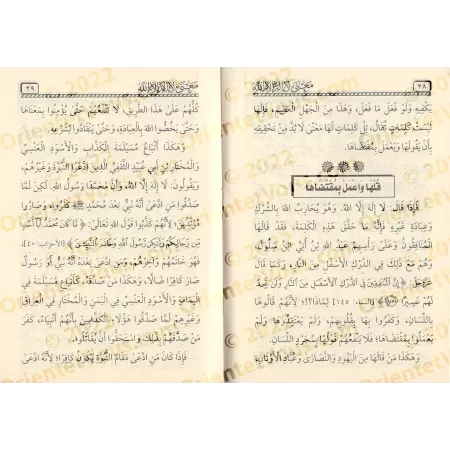 ٢٨
معنى لا إله إلا الله
يَكْفِيهِ وَلَوْ فَعَلَ مَا فَعَلَ، وَهَذَا مِنَ الْجَهْلِ الْعَظِيمِ، فَإِنَّهَا
لَيْسَتْ كَلِمَاتٍ تُقَالُ، بَلْ كَلِمَاتٍ لَهَا مَعْنًى لَا بُدَّ مِنْ تَحْقِيقِهِ
بِأَنْ يَقُولَهَا وَيَعْمَلَ بِمُقْتَضَاهَا.
قُلْهَا وَاعْمَلْ بِمُقْتَضَاهَا
فَإِذَا قَالَ: لَا إِلَهَ إِلَّا اللهُ. وَهُوَ يُحَارِبُ اللهَ بِالشِّرْكِ
وَعِبَادَةِ غَيْرِهِ فَإِنَّهُ مَا حَقَّقَ هَذِهِ الْكَلِمَةَ، فَقَدْ قَالَهَا
الْمُنَافِقُونَ وَعَلَى رَأْسِهِمْ عَبْدُ اللهِ بْنُ أُبَيِّ ابْنُ سَلُولَ،
وَهُمْ مَعَ ذَلِكَ فِي الدَّرْكِ الْأَسْفَلِ مِنَ النَّارِ، وَكَمَا قَالَ
فِي الدَّرْكِ الْأَسْفَلِ مِنَ النَّارِ وَلَنْ تَجِدَ
لَهُمْ نَصِيرًا [النساء: ١٤٥] لِمَاذَا؟! لِأَنَّهُمْ قَالُوهَا
بِاللِّسَانِ، وَكَفَرُوا بِهَا بِقُلُوبِهِمْ، وَلَمْ يَعْتَقِدُوهَا وَلَمْ
يَعْمَلُوا بِمُقْتَضَاهَا؛ فَلَا يَنْفَعُهُمْ قَوْلُهَا بِمُجَرَّدِ اللِّسَانِ.
وَهَكَذَا مَنْ قَالَهَا مِنَ الْيَهُودِ وَالنَّصَارَى وَعُبَّادِ الْأَوْثَانِ،
٢٩
معنى لا إله إلا الله
كُلُّهُمْ عَلَى هَذَا الطَّرِيقِ، لَا تَنْفَعُهُمْ حَتَّى يُؤْمِنُوا بِمَعْنَاهَا
وَحَتَّى يَخُصُّوا اللهَ بِالْعِبَادَةِ، وَحَتَّى يَنْقَادُوا لِشَرْعِهِ.
وَهَكَذَا أَتْبَاعُ مُسَيْلِمَةَ الْكَذَّابِ وَالْأَسْوَدِ الْعَنْسِيِّ
وَالْمُخْتَارِ بْنِ أَبِي عُبَيْدٍ الثَّقَفِيِّ الَّذِينَ ادَّعَوُا النُّبُوَّةَ وَغَيْرِهِمْ،
وَيَقُولُونَ: لَا إِلَهَ إِلَّا اللهُ، وَأَنَّ مُحَمَّدًا رَسُولُ اللهِ. لَكِنْ لَمَّا
صَدَّقُوا مَنِ ادَّعَى النُّبُوَّةَ بَعْدَ مُحَمَّدٍ ﷺ كَفَرُوا، وَصَارُوا
مُرْتَدِّينَ؛ لِأَنَّهُمْ كَذَّبُوا قَوْلَ اللهِ تَعَالَى: ﴿مَا كَانَ مُحَمَّدٌ أَبَا أَحَدٍ
مِنْ رِجَالِكُمْ وَلَكِنْ رَسُولَ اللهِ وَخَاتَمَ النَّبِيِّينَ﴾ [الأحزاب: ٤٠]،
فَهُوَ خَاتَمُهُمْ وَآخِرُهُمْ، وَمَنِ ادَّعَى بَعْدَهُ أَنَّهُ نَبِيٌّ أَوْ رَسُولٌ
صَارَ كَافِرًا ضَالًّا، وَهَكَذَا مَنْ صَدَّقَهُ، كَأَتْبَاعِ مُسَيْلِمَةَ فِي
الْيَمَامَةِ وَالْأَسْوَدِ الْعَنْسِيِّ فِي الْيَمَنِ وَالْمُخْتَارِ فِي الْعِرَاقِ
وَغَيْرِهِمْ لَمَّا صَدَّقُوا هَؤُلَاءِ الْكَذَّابِينَ بِأَنَّهُمْ أَنْبِيَاءُ، كَفَرَ
مَنْ صَدَّقَهُمْ بِذَلِكَ وَاسْتَحَقُّوا أَنْ يُقَاتَلُوا.
فَإِذَا كَانَ مَنِ ادَّعَى مَقَامَ النُّبُوَّةِ يَكُونُ كَافِرًا؛ لِأَنَّهُ ادَّعَى